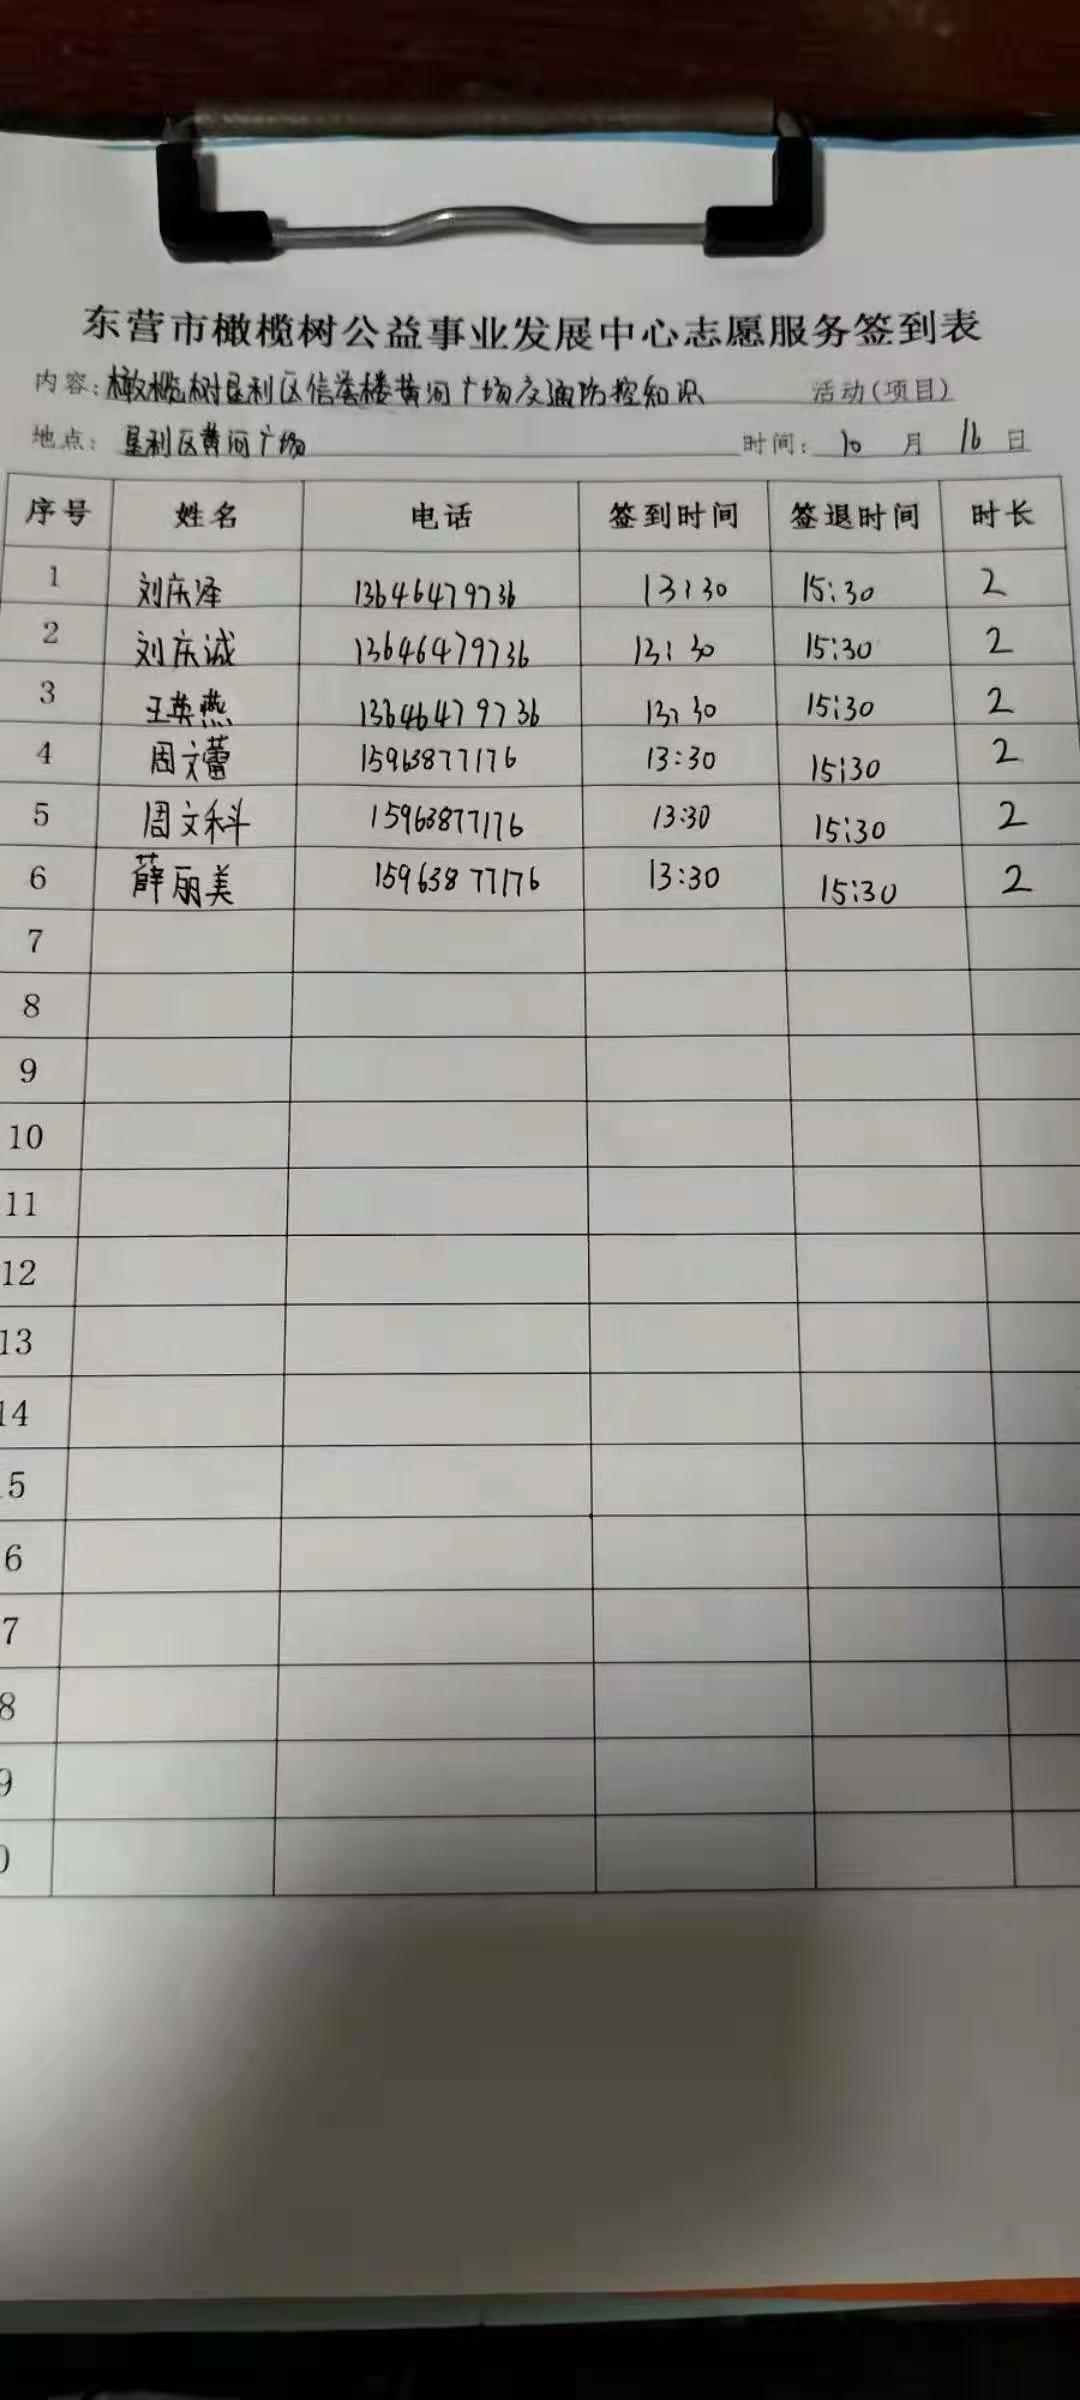 东营市橄榄树公益事业发展中心志愿服务签到表
内容:橄榄树垦利区信誉楼黄河广场交通防控知识 活动(项目)
地点: 垦利区黄河广场 时间: 10 月 16 日
序号 姓名 电话 签到时间 签退时间 时长
1 刘庆泽 13646479736 13:30 15:30 2
2 刘庆诚 13646479736 13:30 15:30 2
3 王英燕 13646479736 13:30 15:30 2
4 周文蕾 15963877176 13:30 15:30 2
5 周文科 15963877176 13:30 15:30 2
6 薛丽美 15963877176 13:30 15:30 2
7
8
9
10
11
12
13
14
5
6
7
8
9
0